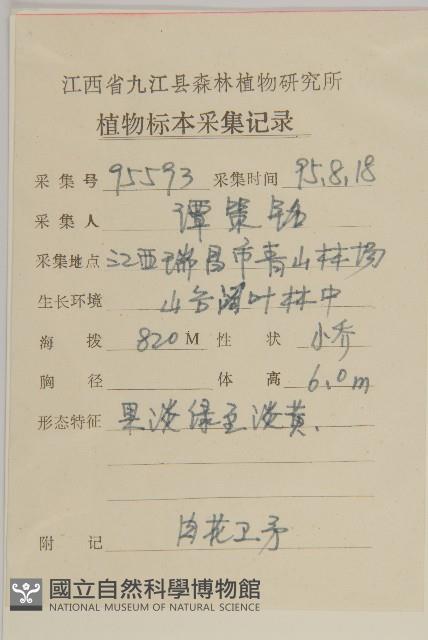 江西省九江县森林植物研究所
植物标本采集记录
采集号 95593 采集时间 95.8.18
采集人 谭策铭
采集地点 江西瑞昌市青山林场
生长环境 山谷阔叶林中
海拨 820M 性状 小乔
胸径 体高 6.0m
形态特征 果淡绿至淡黄.
附记 肉花卫矛
國立自然科學博物館
NATIONAL MUSEUM OF NATURAL SCIENCE